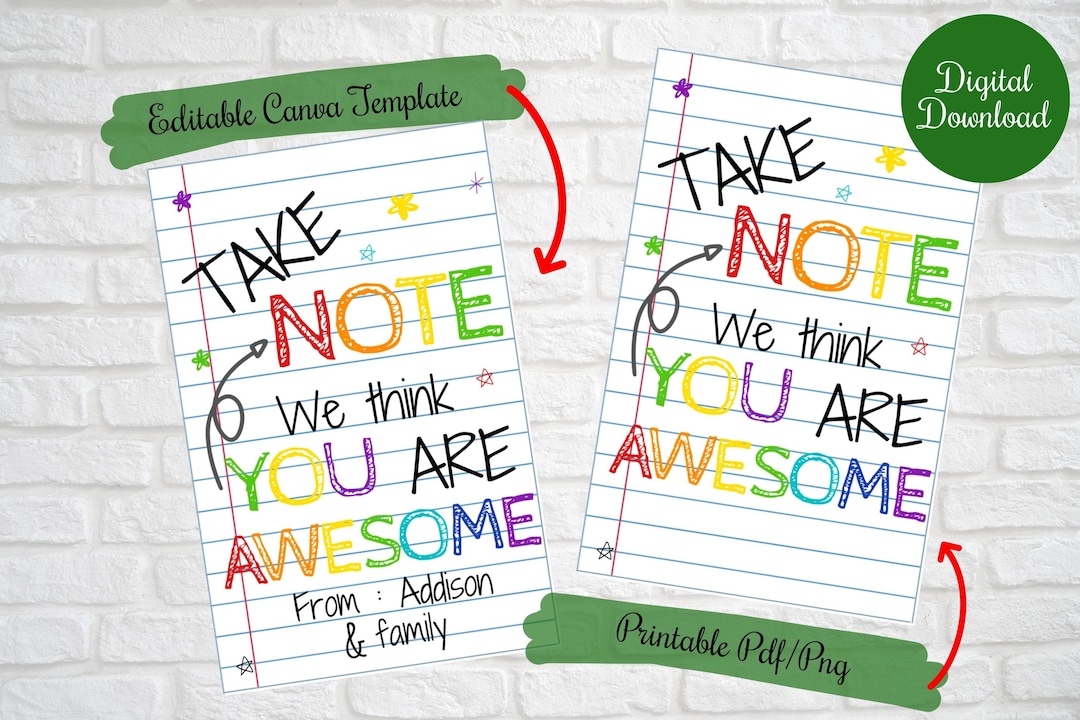 Editable Canva Template
TAKE
NOTE
We think
YOU ARE
AWESOME
From : Addison
& family
Digital
Download
TAKE
NOTE
We think
YOU ARE
AWESOME
Printable Pdf/Png